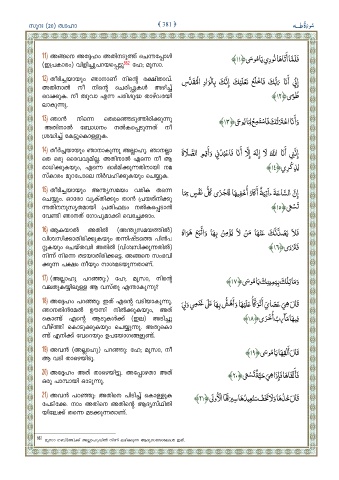 സൂറ: (20) ത്വാഹാ ﴾ 381 ﴿ سُورَةُ طه
11) അങ്ങനെ അദ്ദേഹം അതിനടുത്ത് ചെന്നപ്പോൾ
(ഇപ്രകാരം) വിളിച്ചുപറയപ്പെട്ടു: ഹേ; മൂസാ.
فَلَمَّا أَتَاهَا نُودِيَ يَا مُوسَى ﴿١١﴾
12) തീർച്ചയായും ഞാനാണ് നിന്റെ രക്ഷിതാവ്.
അതിനാൽ നീ നിന്റെ ചെരിപ്പുകൾ അഴിച്ച്
വെക്കുക. നീ ത്വുവാ എന്ന പരിശുദ്ധ താഴ്‌വരയി
ലാകുന്നു.
إِنِّي أَنَا رَبُّكَ فَاخْلَعْ نَعْلَيْكَ إِنَّكَ بِالْوَادِ الْمُقَدَّسِ
طُوًى ﴿١٢﴾
13) ഞാൻ നിന്നെ തെരഞ്ഞെടുത്തിരിക്കുന്നു
അതിനാൽ ബോധനം നൽകപ്പെടുന്നത് നീ
ശ്രദ്ധിച്ച് കേട്ടുകൊള്ളുക.
وَأَنَا اخْتَرْتُكَ فَاسْتَمِعْ لِمَا يُوحَى ﴿١٣﴾
14) തീർച്ചയായും ഞാനാകുന്നു അല്ലാഹു. ഞാനല്ലാ
തെ ഒരു ദൈവവുമില്ല. അതിനാൽ എന്നെ നീ ആ
രാധിക്കുകയും, എന്നെ ഓർമിക്കുന്നതിനായി നമ
സ്കാരം മുറപോലെ നിർവഹിക്കുകയും ചെയ്യുക.
إِنَّنِي أَنَا اللَّهُ لَا إِلَهَ إِلَّا أَنَا فَاعْبُدْنِي وَأَقِمِ الصَّلَاةَ
لِذِكْرِي ﴿١٤﴾
15) തീർച്ചയായും അന്ത്യസമയം വരിക തന്നെ
ചെയ്യും. ഓരോ വ്യക്തിക്കും താൻ പ്രയത്നിക്കു
ന്നതിനനുസൃതമായി പ്രതിഫലം നൽകപ്പെടാൻ
വേണ്ടി ഞാനത് ഗോപ്യമാക്കി വെച്ചേക്കാം.
إِنَّ السَّاعَةَ آتِيَةٌ أَكَادُ أُخْفِيهَا لِتُجْزَى كُلُّ نَفْسٍ بِمَا
تَسْعَى ﴿١٥﴾
16) ആകയാൽ അതിൽ (അന്ത്യസമയത്തിൽ)
വിശ്വസിക്കാതിരിക്കുകയും തന്നിഷ്ടത്തെ പിൻപ
റ്റുകയും ചെയ്തവർ അതിൽ (വിശ്വസിക്കുന്നതിൽ)
നിന്ന് നിന്നെ തടയാതിരിക്കട്ടെ. അങ്ങനെ സംഭവി
ക്കുന്ന പക്ഷം നീയും നാശമടയുന്നതാണ്.
فَلَا يَصُدَّنَّكَ عَنْهَا مَنْ لَا يُؤْمِنُ بِهَا وَاتَّبَعَ هَوَاهُ
فَتَرْدَى ﴿١٦﴾
17) (അല്ലാഹു പറഞ്ഞു:) ഹേ; മൂസാ, നിന്റെ
വലതുകയ്യിലുള്ള ആ വസ്തു എന്താകുന്നു?
وَمَا تِلْكَ بِيَمِينِكَ يَا مُوسَى ﴿١٧﴾
18) അദ്ദേഹം പറഞ്ഞു: ഇത് എന്റെ വടിയാകുന്നു.
ഞാനതിന്മേൽ ഊന്നി നിൽക്കുകയും, അത്
കൊണ്ട് എന്റെ ആടുകൾക്ക് (ഇല) അടിച്ചു
വീഴ്ത്തി കൊടുക്കുകയും ചെയ്യുന്നു. അതുകൊ
ണ്ട് എനിക്ക് വേറെയും ഉപയോഗങ്ങളുണ്ട്.
قَالَ هِيَ عَصَايَ أَتَوَكَّأُ عَلَيْهَا وَأَهُشُّ بِهَا عَلَى غَنَمِي وَلِيَ
فِيهَا مَآرِبُ أُخْرَى ﴿١٨﴾
19) അവൻ (അല്ലാഹു) പറഞ്ഞു: ഹേ; മൂസാ, നീ
ആ വടി താഴെയിടൂ.
قَالَ أَلْقِهَا يَا مُوسَى ﴿١٩﴾
20) അദ്ദേഹം അത് താഴെയിട്ടു. അപ്പോഴതാ അത്
ഒരു പാമ്പായി ഓടുന്നു.
فَأَلْقَاهَا فَإِذَا هِيَ حَيَّةٌ تَسْعَى ﴿٢٠﴾
21) അവൻ പറഞ്ഞു: അതിനെ പിടിച്ച് കൊള്ളുക
പേടിക്കേണ്ട. നാം അതിനെ അതിന്റെ ആദ്യസ്ഥിതി
യിലേക്ക് തന്നെ മടക്കുന്നതാണ്.
قَالَ خُذْهَا وَلَا تَخَفْ سَنُعِيدُهَا سِيرَتَهَا الْأُولَى ﴿٢١﴾